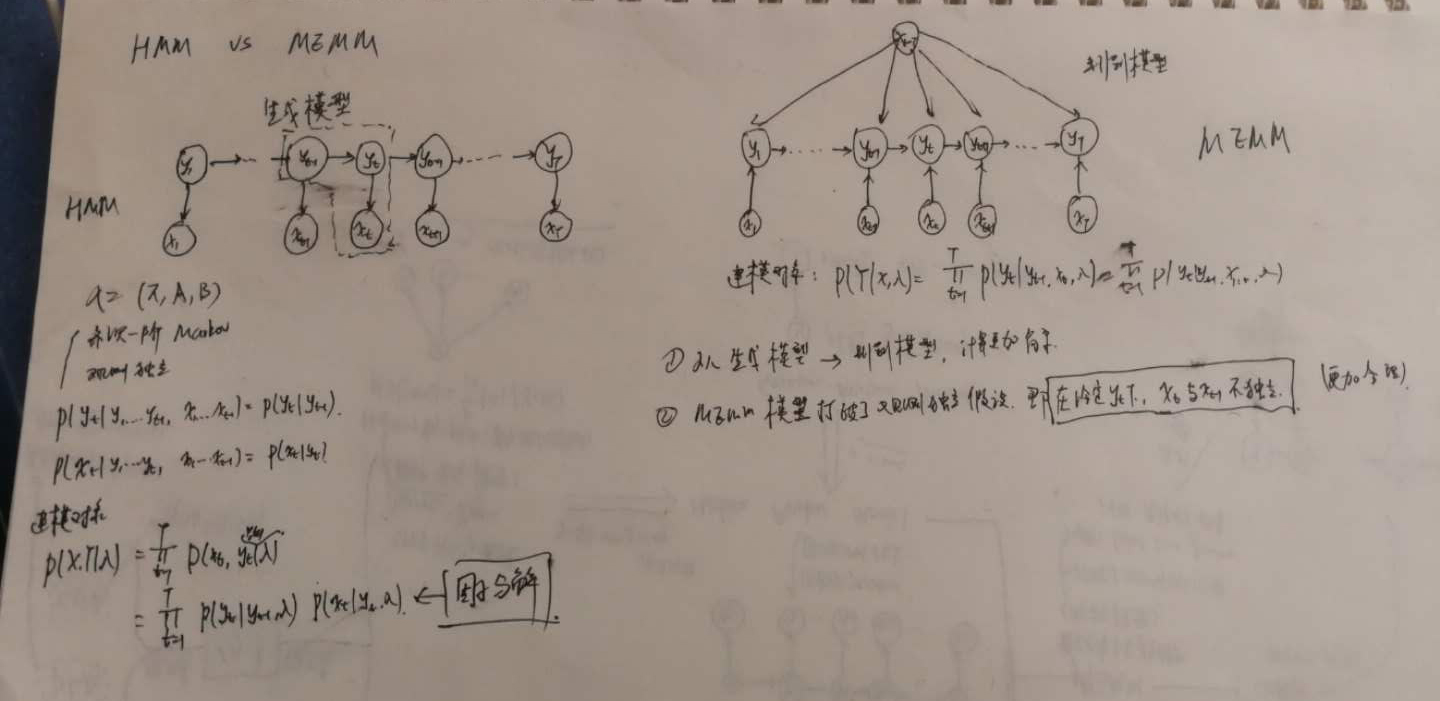 HMM vs MEMM
生成模型
HMM
y₁ → ... → yₜ₋₁ → yₜ → yₜ₊₁ ... → y_T
x₁ xₜ₋₁ xₜ xₜ₊₁ x_T
λ = (π, A, B)
齐次一阶 Markov
观测独立
P(yₜ|y₁...yₜ₋₁, x₁...xₜ₋₁) = P(yₜ|yₜ₋₁).
P(xₜ|y₁...yₜ, x₁...xₜ₋₁) = P(xₜ|yₜ)
建模对象
P(X,Y|λ) = ∏ᵀₜ₌₁ P(xₜ, yₜ|λ)
= ∏ᵀₜ₌₁ P(yₜ|yₜ₋₁,λ) P(xₜ|yₜ,λ). ← 因子分解.
判别模型
MEMM
y₁ → ... → yₜ₋₁ → yₜ → yₜ₊₁ ... → y_T
x₁ xₜ₋₁ xₜ xₜ₊₁ x_T
建模对象: P(Y|X,λ) = ∏ᵀₜ₌₁ P(yₜ|yₜ₋₁, xₜ, λ) = ∏ᵀₜ₌₁ P(yₜ|yₜ₋₁, x₁:ₜ, λ)
① 从生成模型 → 判别模型, 计算更加简单.
② MEMM 模型打破了观测独立假设. 即在给定yₜ下, xₜ与xₜ₋₁不独立. (更加合理).